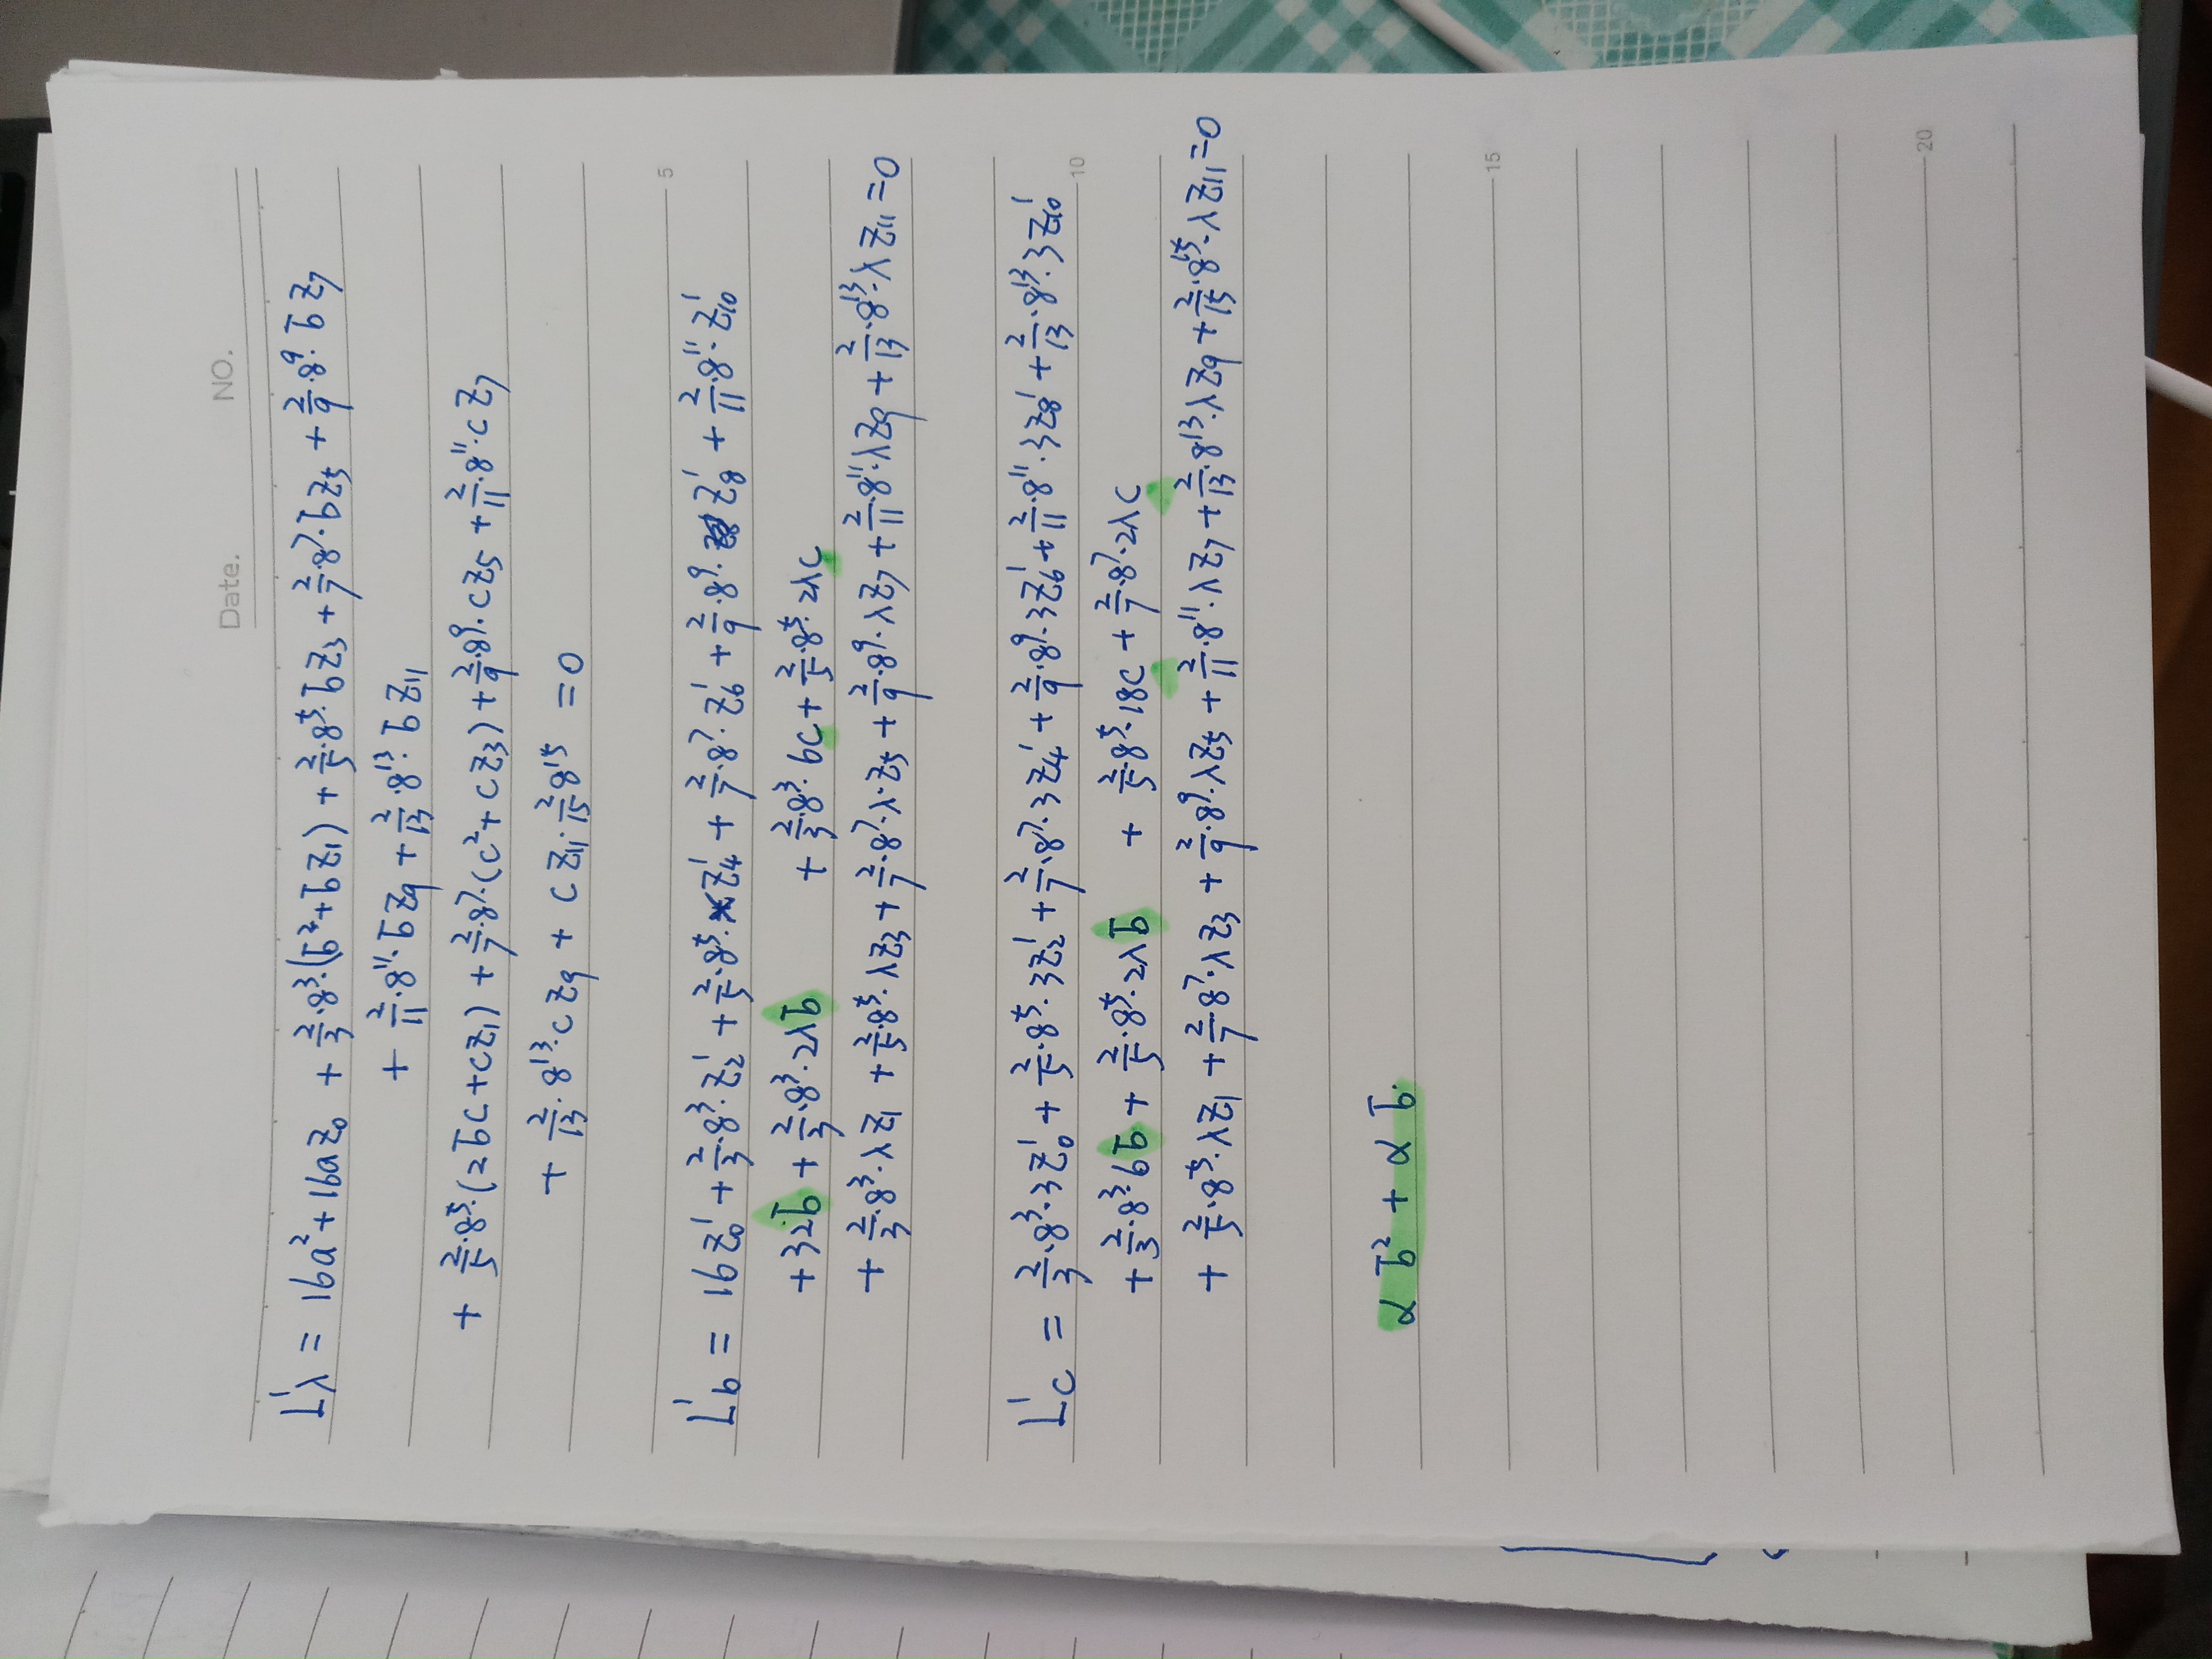 Date. NO.
L'λ = 16a² + 16az₀ + 2/3·8³·(b̄²+b̄z₁) + 2/5·8⁵·b̄z₃ + 2/7·8⁷·b̄z₅ + 2/9·8⁹·b̄z₇
+ 2/11·8¹¹·b̄z₉ + 2/13·8¹³·b̄z₁₁
+ 2/5·8⁵·(2b̄c+cz₁) + 2/7·8⁷·(c²+cz₃) + 2/9·8⁹·cz₅ + 2/11·8¹¹·cz₇
+ 2/13·8¹³·cz₉ + cz₁₁·2/15 8¹⁵ = 0
5
L'b = 16z₀' + 2/3·8³·z₂' + 2/5·8⁵·z₄' + 2/7·8⁷·z₆' + 2/9·8⁹·z₈' + 2/11·8¹¹·z₁₀'
+ 32b̄ + 2/3·8³·2λb̄ + 2/3·8³·6c + 2/5·8⁵·2λc
+ 2/3·8³·λz₁ + 2/5·8⁵·λz₃ + 2/7·8⁷·λ·z₅ + 2/9·8⁹·λz₇ + 2/11·8¹¹·λz₉ + 2/13·8¹³·λz₁₁ = 0
L'c = 2/3·8³·3z₀' + 2/5·8⁵·3z₂' + 2/7·8⁷·3z₄' + 2/9·8⁹·3z₆' + 2/11·8¹¹·3z₈' + 2/13·8¹³·3z₁₀'
10
+ 2/3·8³·6b̄ + 2/5·8⁵·2λb̄ + 2/5·8⁵·18c + 2/7·8⁷·2λc
+ 2/5·8⁵·λz₁ + 2/7·8⁷·λz₃ + 2/9·8⁹·λz₅ + 2/11·8¹¹·λz₇ + 2/13·8¹³·λz₉ + 2/15·8¹⁵·λz₁₁ = 0
α b̄² + α b̄.
15
20